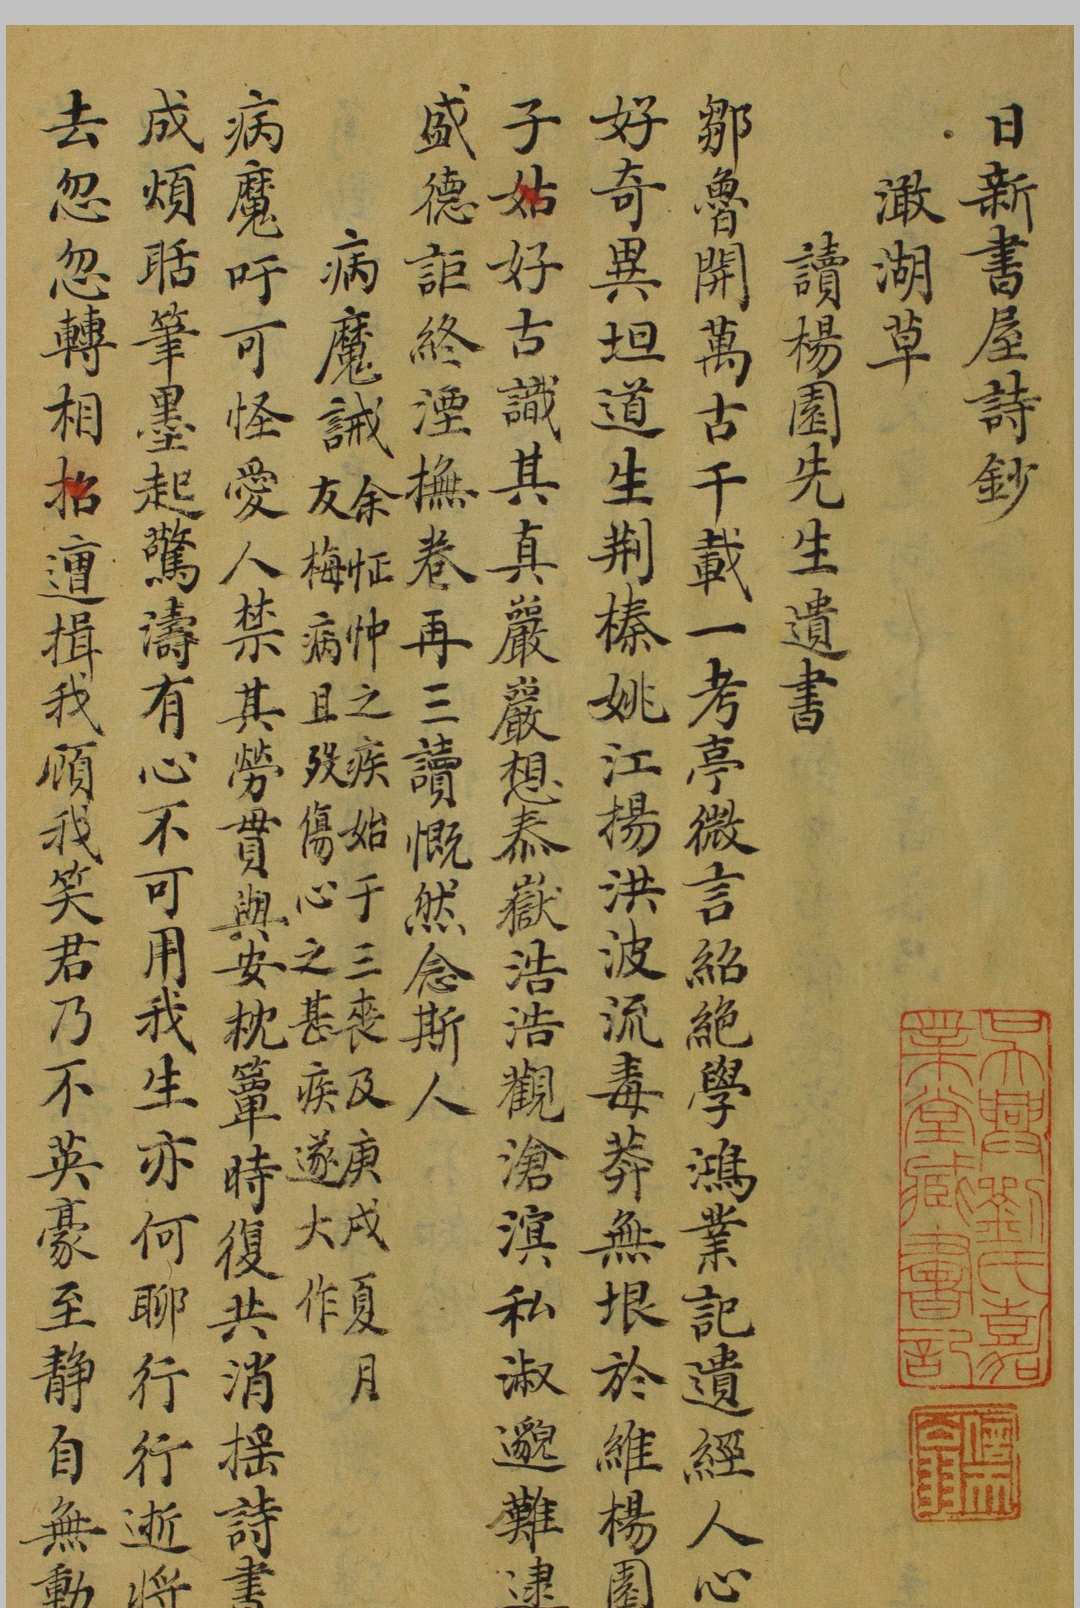 日新書屋詩鈔
澉湖草
讀楊園先生遺書
鄒魯開萬古千載一考亭微言紹絶學鴻業記遺經人心
好奇異坦道生荆榛姚江揚洪波流毒莽無垠於維楊園
子姑好古識其真嚴嚴想泰嶽浩浩觀滄溟私淑邈難逮
盛德詎終湮撫卷再三讀慨然念斯人
病魔誡
余怔忡之疾始于三喪及庚戌夏月
友梅病且歿傷心之甚疾遂大作
病魔吁可怪愛人禁其勞貫與安枕簟時復共消揺詩書
成煩聒筆墨起驚濤有心不可用我生亦何聊行行逝将
去忽忽轉相招邅揖我顧我笑君乃不英豪至靜自無動
吳興劉氏嘉
業堂藏書記